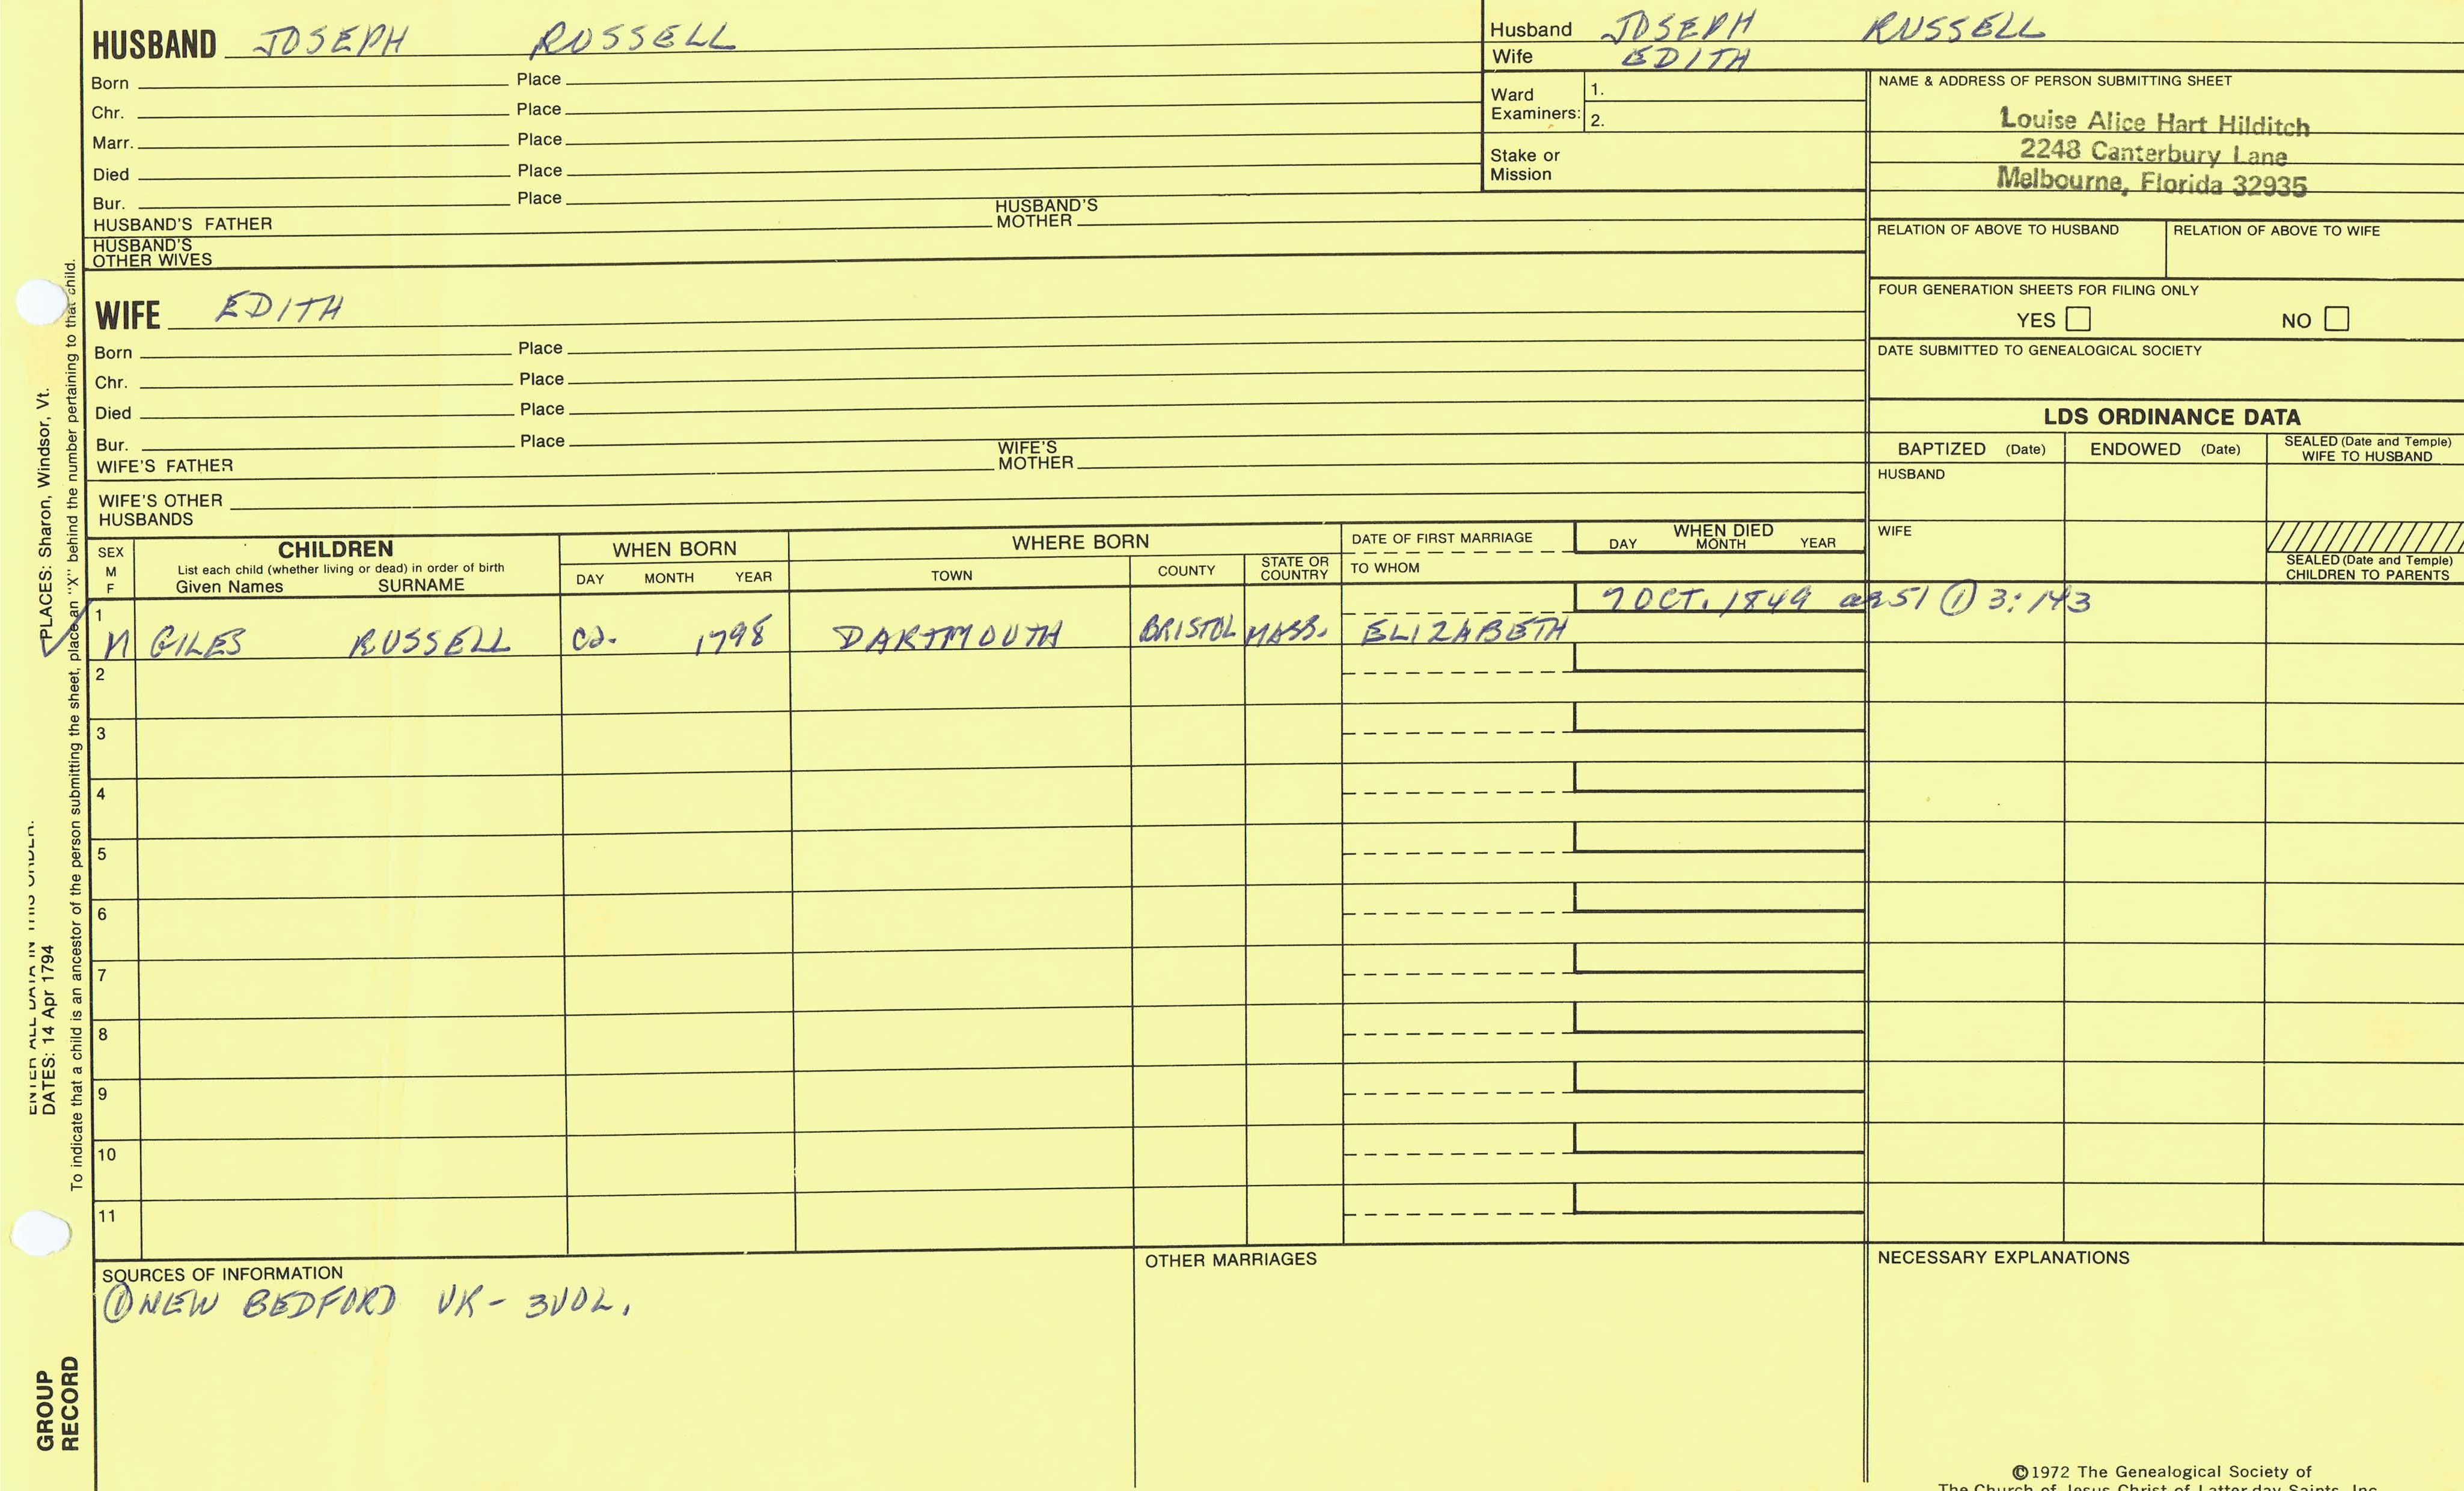 HUSBAND JOSEPH RUSSELL
Born Place
Chr. Place
Marr. Place
Died Place
Bur. Place
HUSBAND'S FATHER HUSBAND'S MOTHER
HUSBAND'S OTHER WIVES
Husband JOSEPH RUSSELL
Wife EDITH
Ward Examiners: 1.
2.
Stake or Mission
NAME & ADDRESS OF PERSON SUBMITTING SHEET
Louise Alice Hart Hilditch
2248 Canterbury Lane
Melbourne, Florida 32935
RELATION OF ABOVE TO HUSBAND RELATION OF ABOVE TO WIFE
FOUR GENERATION SHEETS FOR FILING ONLY
YES NO
DATE SUBMITTED TO GENEALOGICAL SOCIETY
WIFE EDITH
Born Place
Chr. Place
Died Place
Bur. Place
WIFE'S FATHER WIFE'S MOTHER
WIFE'S OTHER HUSBANDS
LDS ORDINANCE DATA
BAPTIZED (Date) ENDOWED (Date) SEALED (Date and Temple) WIFE TO HUSBAND
HUSBAND
WIFE
SEALED (Date and Temple) CHILDREN TO PARENTS
SEX M F
CHILDREN
List each child (whether living or dead) in order of birth
Given Names SURNAME
WHEN BORN
DAY MONTH YEAR
WHERE BORN
TOWN COUNTY STATE OR COUNTRY
DATE OF FIRST MARRIAGE
TO WHOM
WHEN DIED
DAY MONTH YEAR
7 OCT. 1849 ae 51 ① 3:143
1
M GILES RUSSELL ca. 1798 DARTMOUTH BRISTOL MASS. ELIZABETH
2
3
4
5
6
7
8
9
10
11
SOURCES OF INFORMATION
① NEW BEDFORD VR - 3 VOL.
OTHER MARRIAGES
NECESSARY EXPLANATIONS
©1972 The Genealogical Society of
The Church of Jesus Christ of Latter-day Saints, Inc.
ENTER ALL DATA IN THIS ORDER:
DATES: 14 Apr 1794
PLACES: Sharon, Windsor, Vt.
To indicate that a child is an ancestor of the person submitting the sheet, place an "X" behind the number pertaining to that child.
GROUP
RECORD